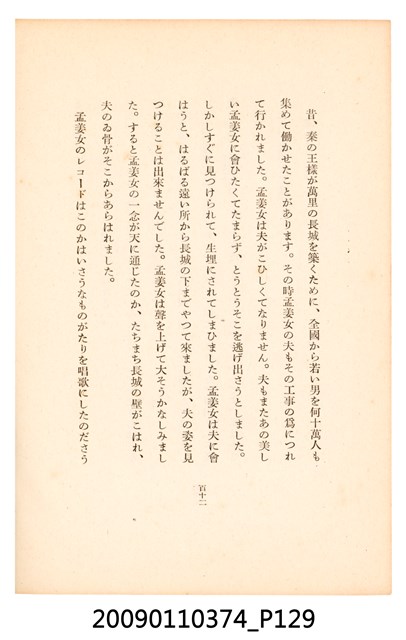 昔、秦の王樣が萬里の長城を築くために、全國から若い男を何十萬人も
集めて働かせたことがあります。その時孟姜女の夫もその工事の爲につれ
て行かれました。孟姜女は夫がこひしくてなりません。夫もまたあの美し
い孟姜女に會ひたくてたまらず、とうとうそこを逃げ出さうとしました。
しかしすぐに見つけられて、生埋にされてしまひました。孟姜女は夫に會
はうと、はるばる遠い所から長城の下までやつて來ましたが、夫の姿を見
つけることは出來ませんでした。孟姜女は聲を上げて大そうかなしみまし
た。すると孟姜女の一念が天に通じたのか、たちまち長城の壁がこはれ、
夫のゐ骨がそこからあらはれました。
孟姜女のレコードはこのかはいさうなものがたりを唱歌にしたのださう
百十二
20090110374_P129